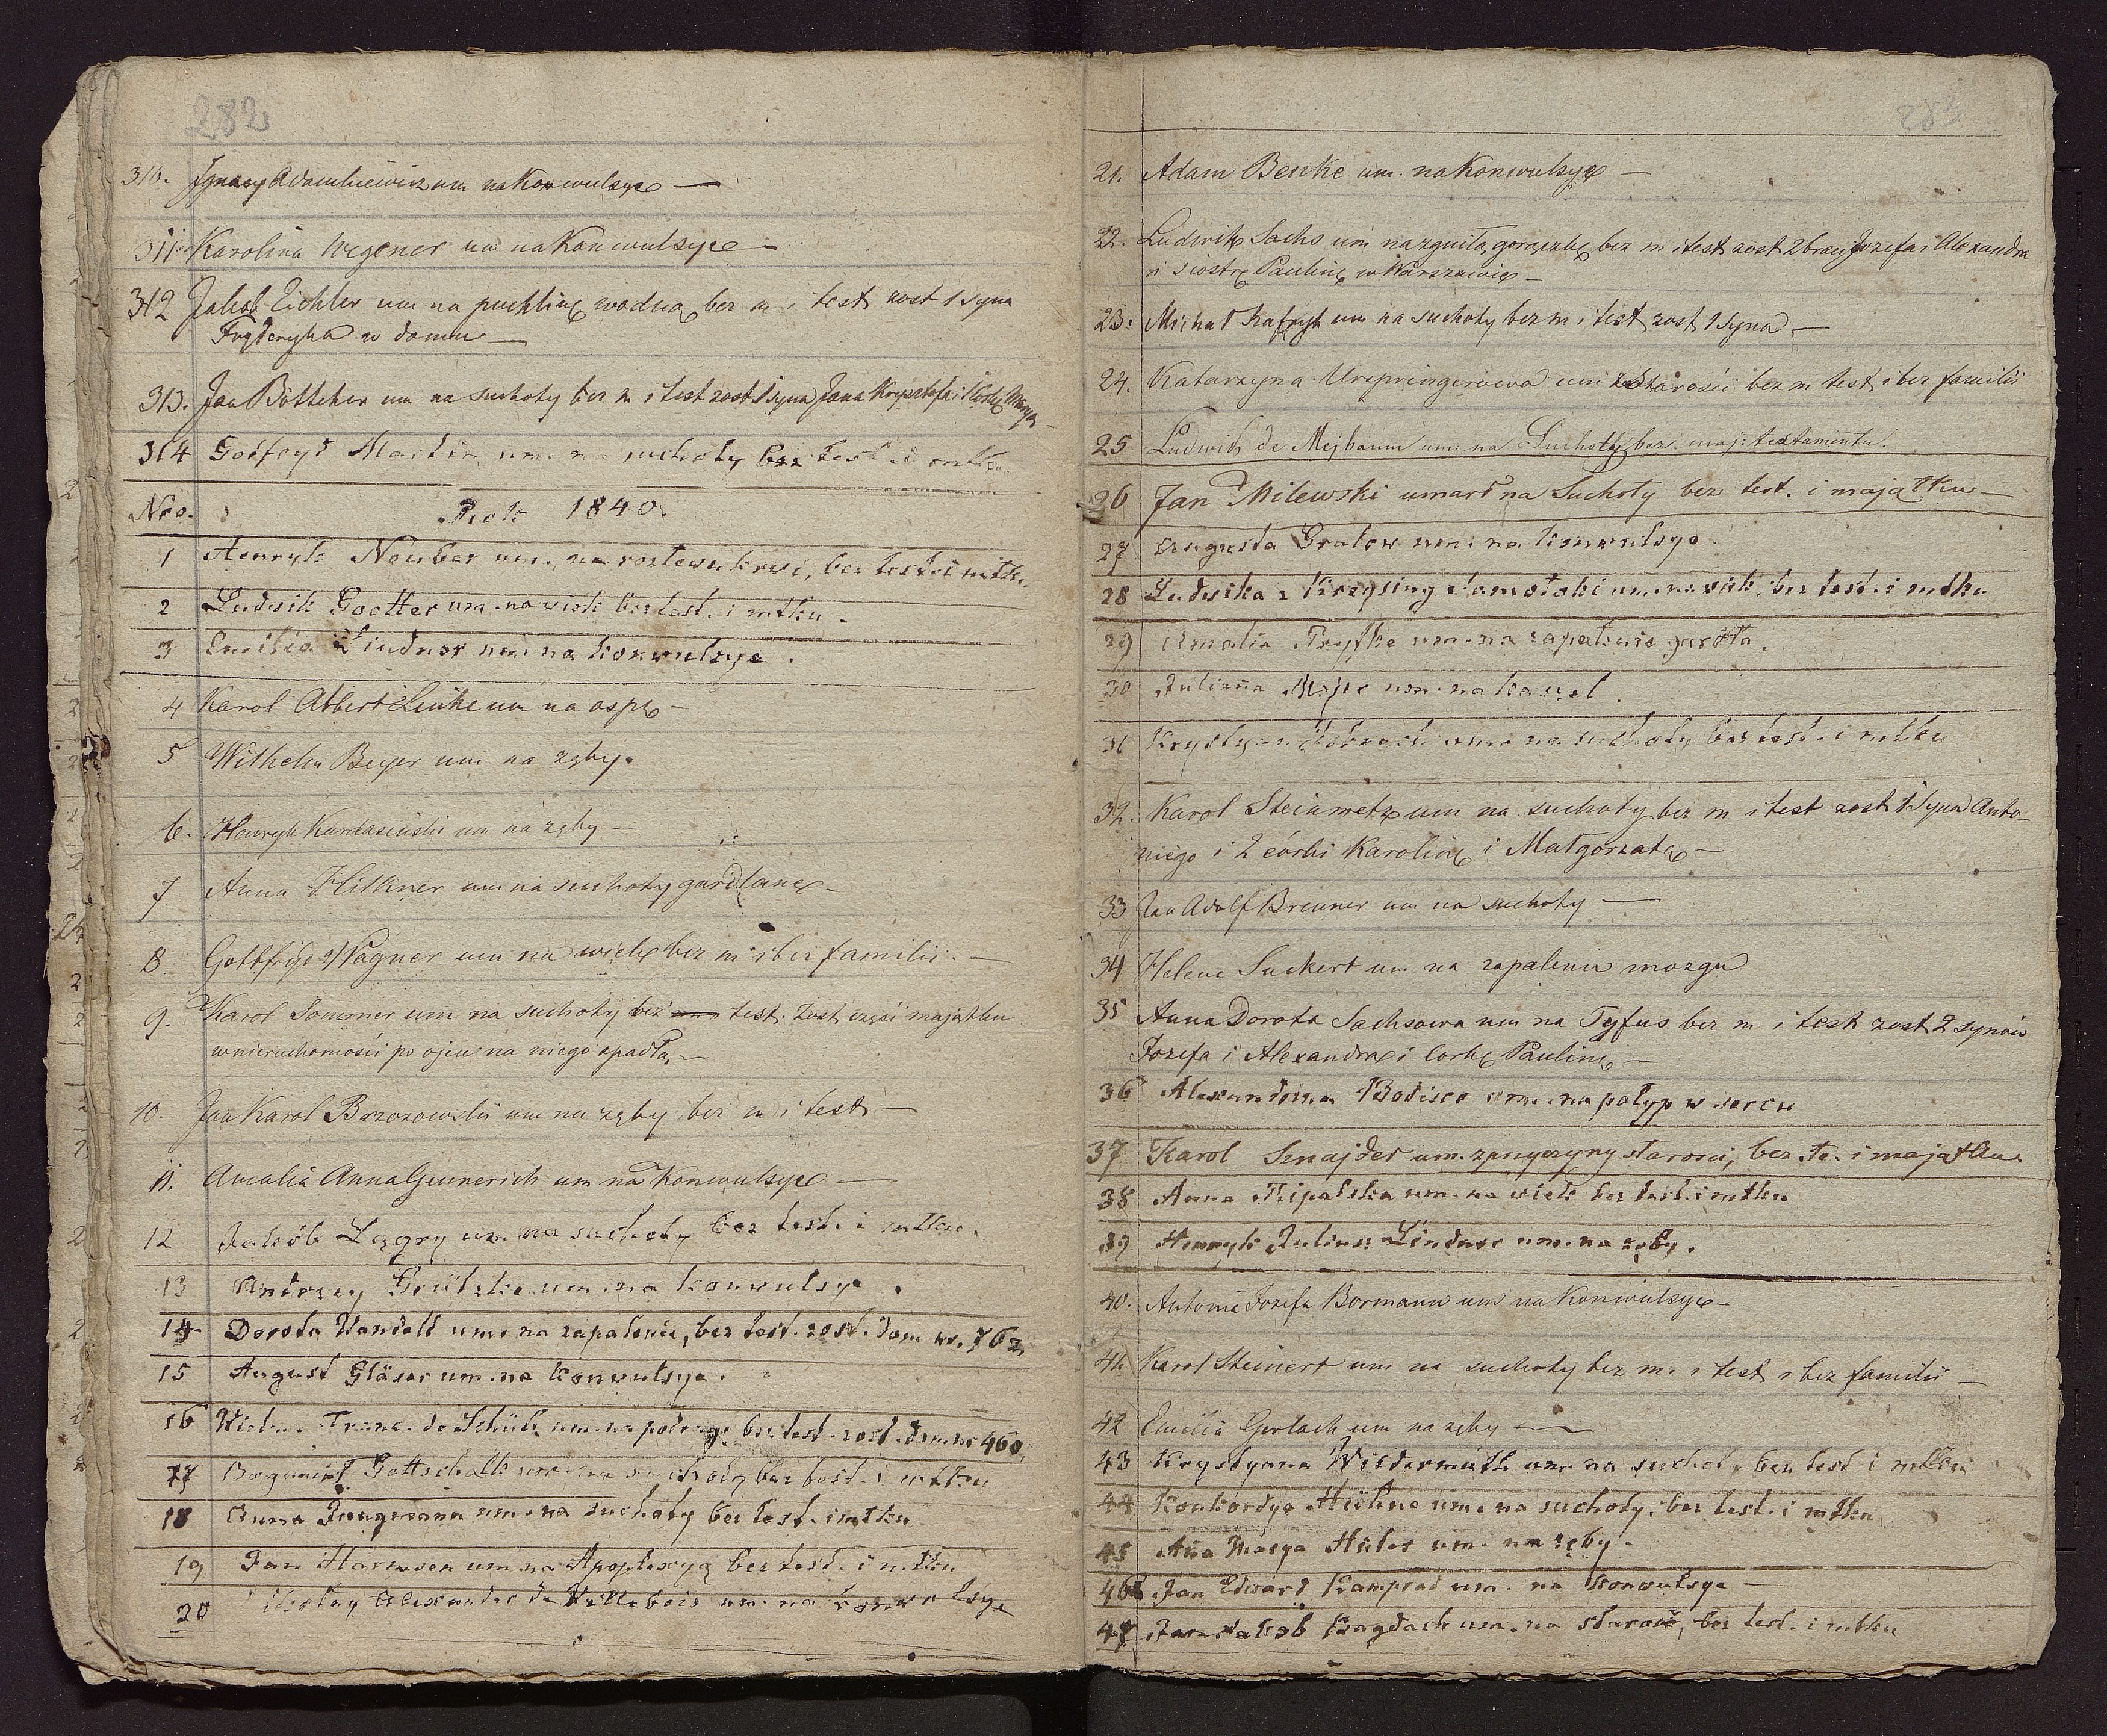 282
310. Ignacy Adamkiewicz um na Konwulsye —
311 Karolina Wegener um na Konwulsye —
312 Jakob Eichler um na puchlinę wodną bez m i test zost 1 syna
Fryderyka w domu —
313. Jan Böttcher um na suchoty bez m i test zost 1 syna Jana Krysztofa i 1 Corkę Maryą
314 Godfryd Martin um. na suchoty bez test i mtku
Nro. Rok 1840.
1 Henryk Neuber um. na bez test i mtku.
2 Ludwik Goetter um. na wiek bez test. i mtku.
3 Emilia Lindner um. na konwulsye.
4 Karol Albert Linke um na ospę —
5 Wilhelm Beyer um na zęby.
6. Henryk Kardasiński um na zęby —
7 Anna Hilkner um na suchoty gardlane —
8. Gottfryd Wagner um na wiek bez m i bez familii. —
9. Karol Sommer um na suchoty bez test. Zost część majątku
w nieruchomości po ojcu na niego spadłą —
10. Jan Karol Brzozowski um na zęby bez m i test —
11. Amalia Anna Gennerich um na Konwulsye —
12 Jakób um. na suchoty bez test. i mtku.
13 Andrzey Grützke um. na konwulsye.
14 Dorota Wandelt um. na zapalenie, bez test. zost. dom nr. 762.
15 August Gläser um. na konwulsye.
16 Franc. de Schütz um. na bez test. zost. dom nr 460.
17 Bogumił Gottschalk um. na suchoty bez test. i mtku
18 Anna Jungmann um. na suchoty bez test. i mtku
19 Jan Harmsen um. na Apoplexyą bez test. i mtku
20 Mikołay Alexander de um. na konwulsye
283
21. Adam Benke um. na Konwulsye —
22. Ludwik Sachs um na zgniłą gorączkę bez m i test zost 2 braci Jozefa i Alexandra
i siostrę Paulinę w Warszawie —
23. Michał um na suchoty bez m i test zost 1 syna —
24. Katarzyna Urspringerowa um z Starości bez m test i bez familii
25 Ludwik de Mejbaum um. na Suchoty bez. maj: testamentu.
26 Jan Milewski umarł na Suchoty bez test. i majątku —
27 Augusta Gratow um. na konwulsye.
28 Ludwika z um. na wiek, bez test. i mtku
29 Amalia um. na zapalenie gardła.
30 Julianna um. na kaszel.
31 Krystyan um. na suchoty bez test. i mtku
32. Karol Steinmetz um na suchoty bez m i test zost 1 Syna Anto-
niego i 2 córki Karolinę i Małgorzatę —
33 Jan Adolf Brenner um na suchoty —
34 Helene Suckert um. na zapalenie mozgu
35 Anna Dorota Sachsowa um na Tyfus bez m i test zost 2 synów
Jozefa i Alexandra i Corkę Paulinę —
36 Alexandrina Bodisco um. na polyp w sercu
37 Karol Sznajder um. z przyczyny starosci, bez. te. i majątku.
38 Anna Ripalska um. na wiek bez test. i mtku
39 Henryk Juliusz Lindner um. na zęby.
40. Antonie Jozefa Bormann um na Konwulsye —
41. Karol Steinert um na suchoty bez m. i test i bez familii —
42 Emilia Gerlach um na zęby —
43 Krystyanna Wildermuth um na suchoty bez test i mtku
44 Konkordya Hühne um. na suchoty, bez test. i mtku
45 Aña Marya Hüter um. na zęby.
46 Jan Edward Kamprad um. na konwulsye —
47 Jan Jakob Bagdach um. na starość, bez test. i mtku